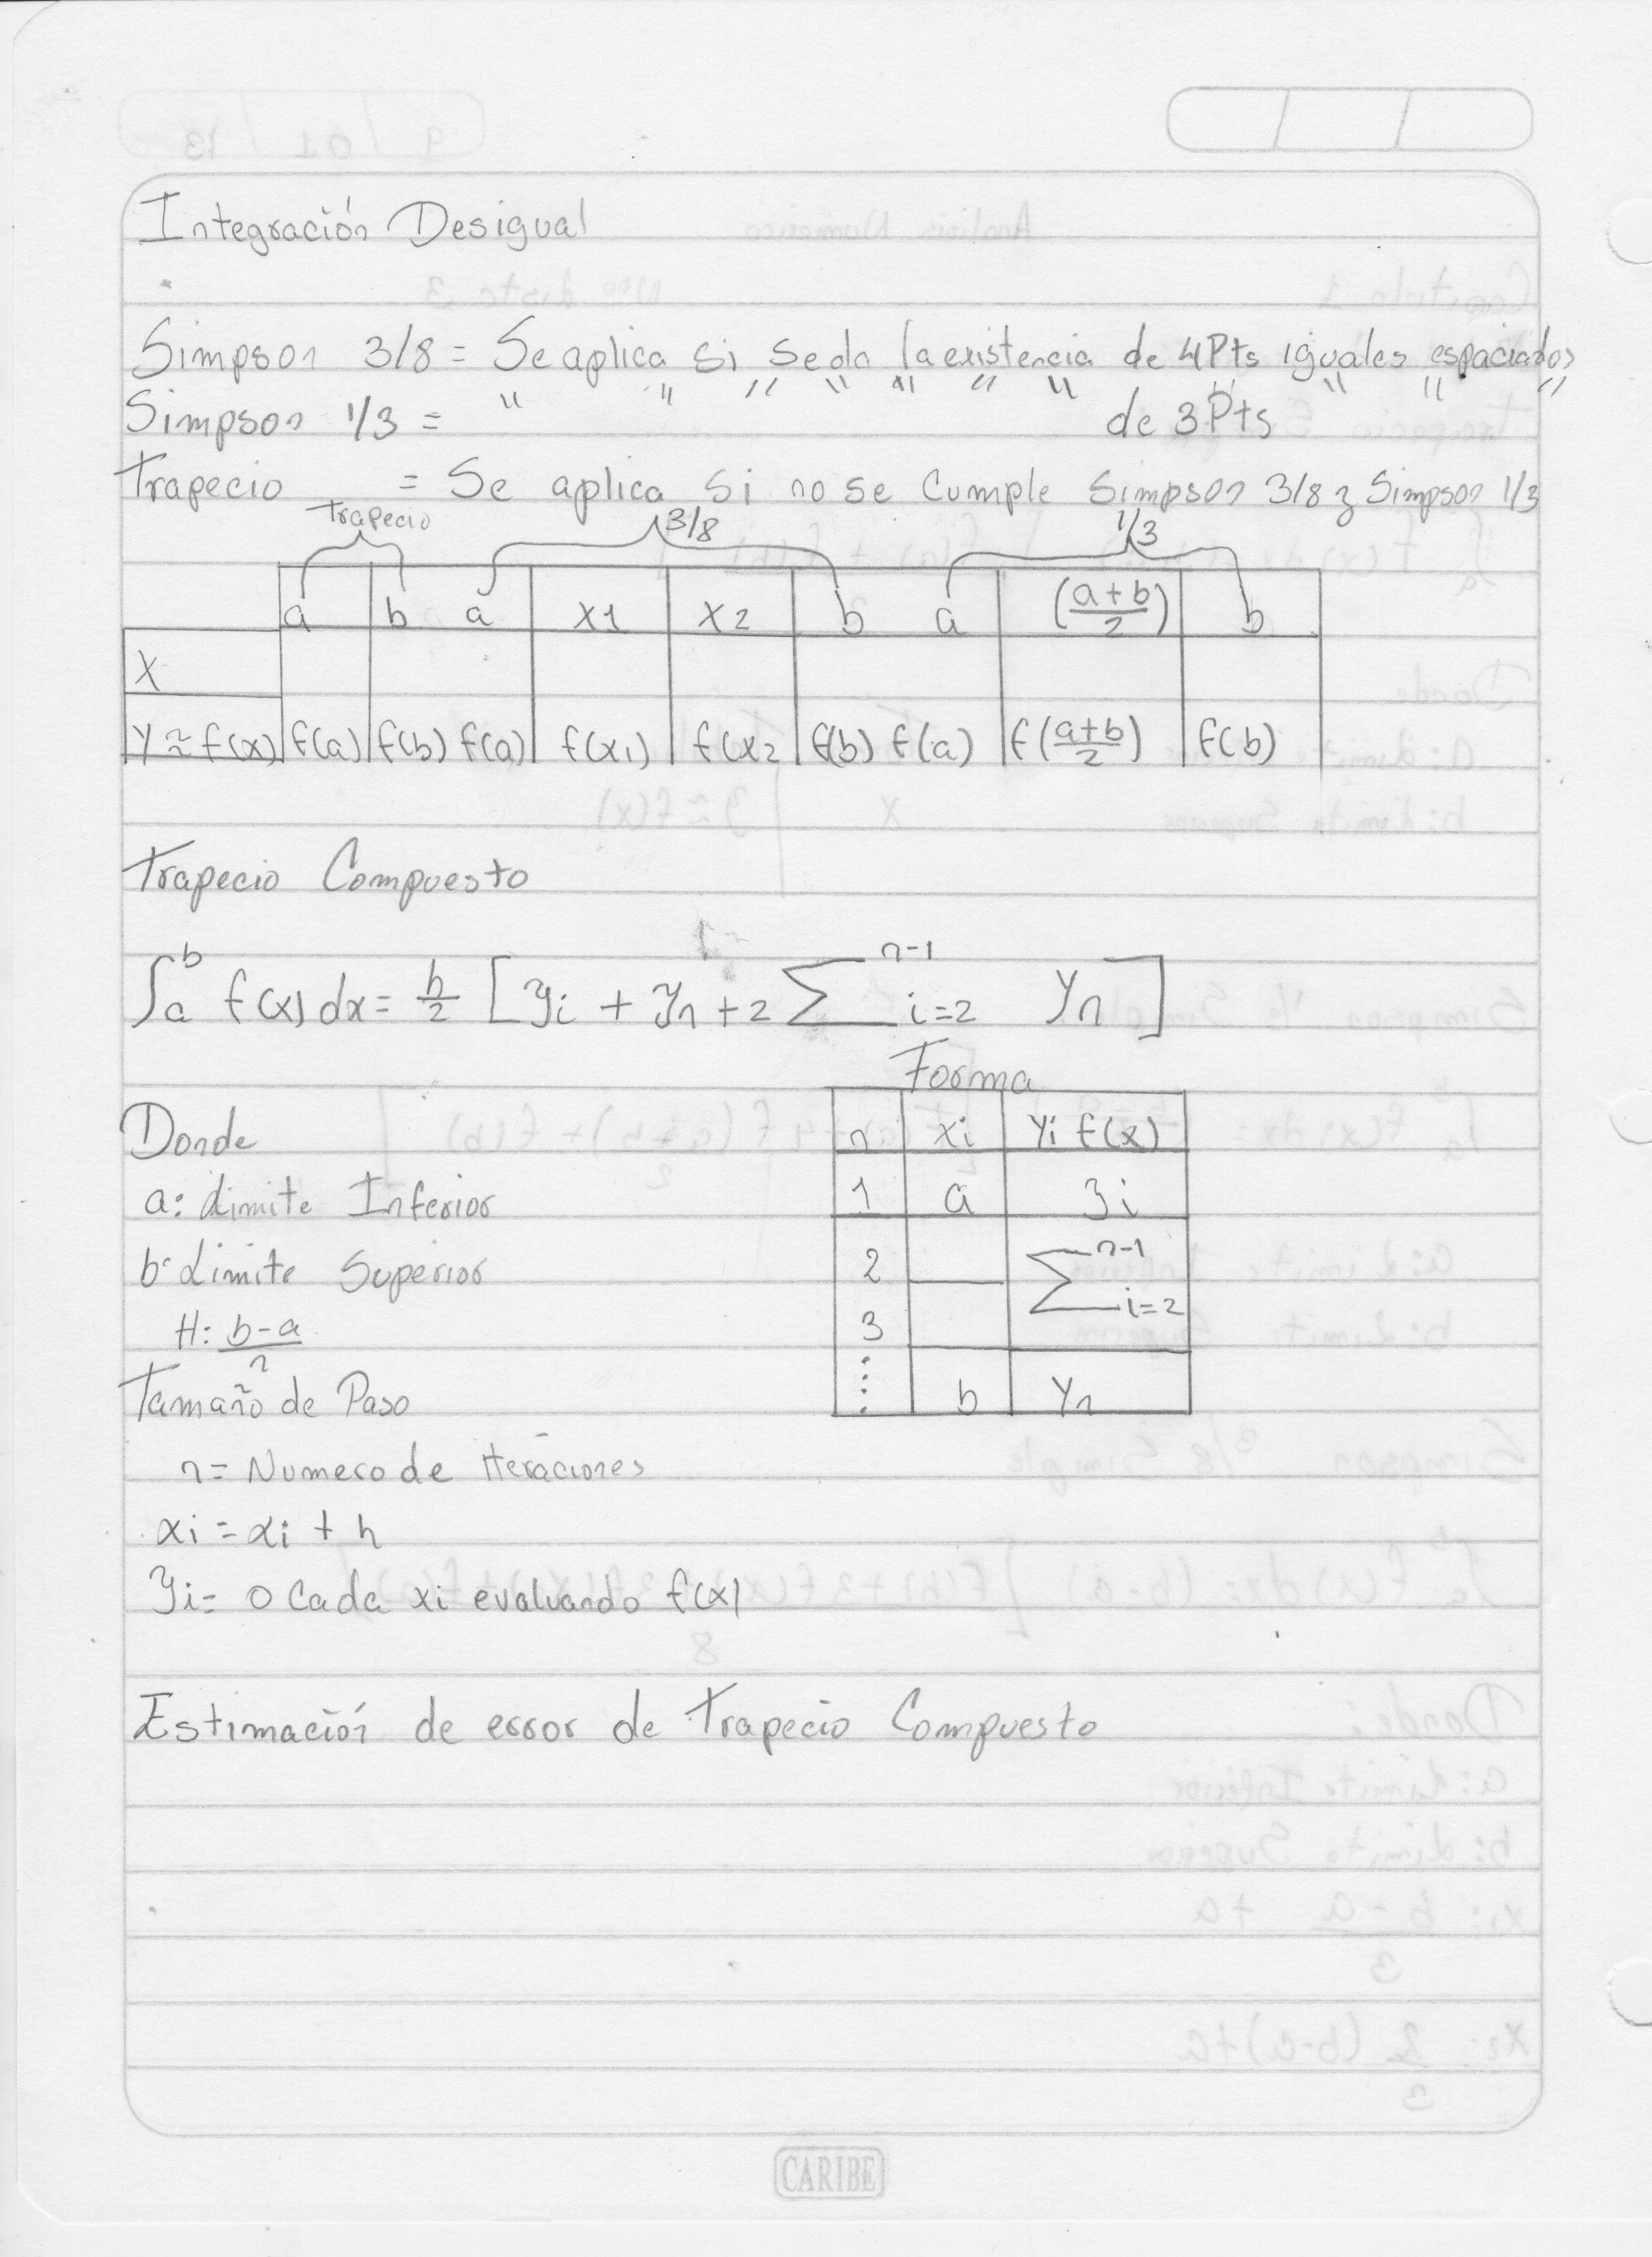 Integración Desigual
Simpson 3/8 = Se aplica si se da la existencia de 4 Pts iguales espaciados
Simpson 1/3 = " " " " " " " de 3 Pts " " "
Trapecio = Se aplica si no se cumple Simpson 3/8 y Simpson 1/3
Trapecio 3/8 1/3
a b a x1 x2 b a (a+b)/2 b
X
Y≈f(x) f(a) f(b) f(a) f(x1) f(x2 f(b) f(a) f(a+b)/2) f(b)
Trapecio Compuesto
∫a^b f(x) dx = h/2 [yi + yn + 2 ∑^n-1 i=2 yn]
Forma
Donde
n xi yi f(x)
a: Limite Inferior
1 a yi
b: Limite Superior
2 ∑^n-1 i=2
H: b-a/n
3
Tamaño de Paso
⋮ b yn
n= Numero de Iteraciones
xi = xi + h
yi= o Cada xi evaluando f(x)
Estimación de error de Trapecio Compuesto
CARIBE